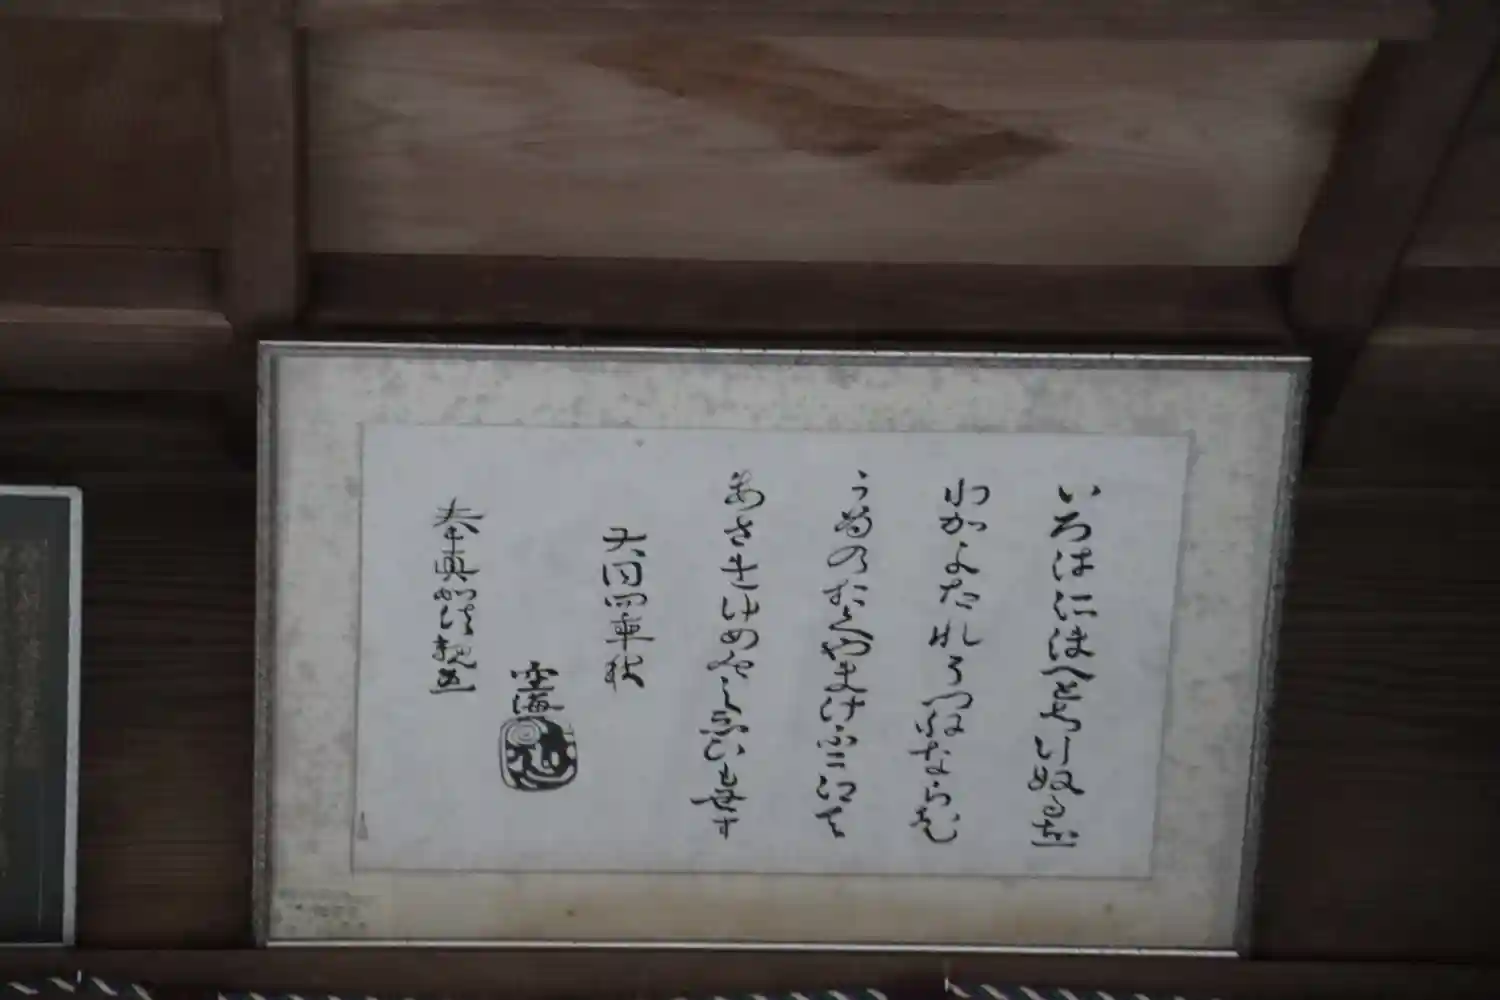 いろはにほへとちりぬるを
わかよたれそつねならむ
うゐのおくやまけふこえて
あさきゆめみしゑひもせす
大同四年秋
空海
奉真如法親王